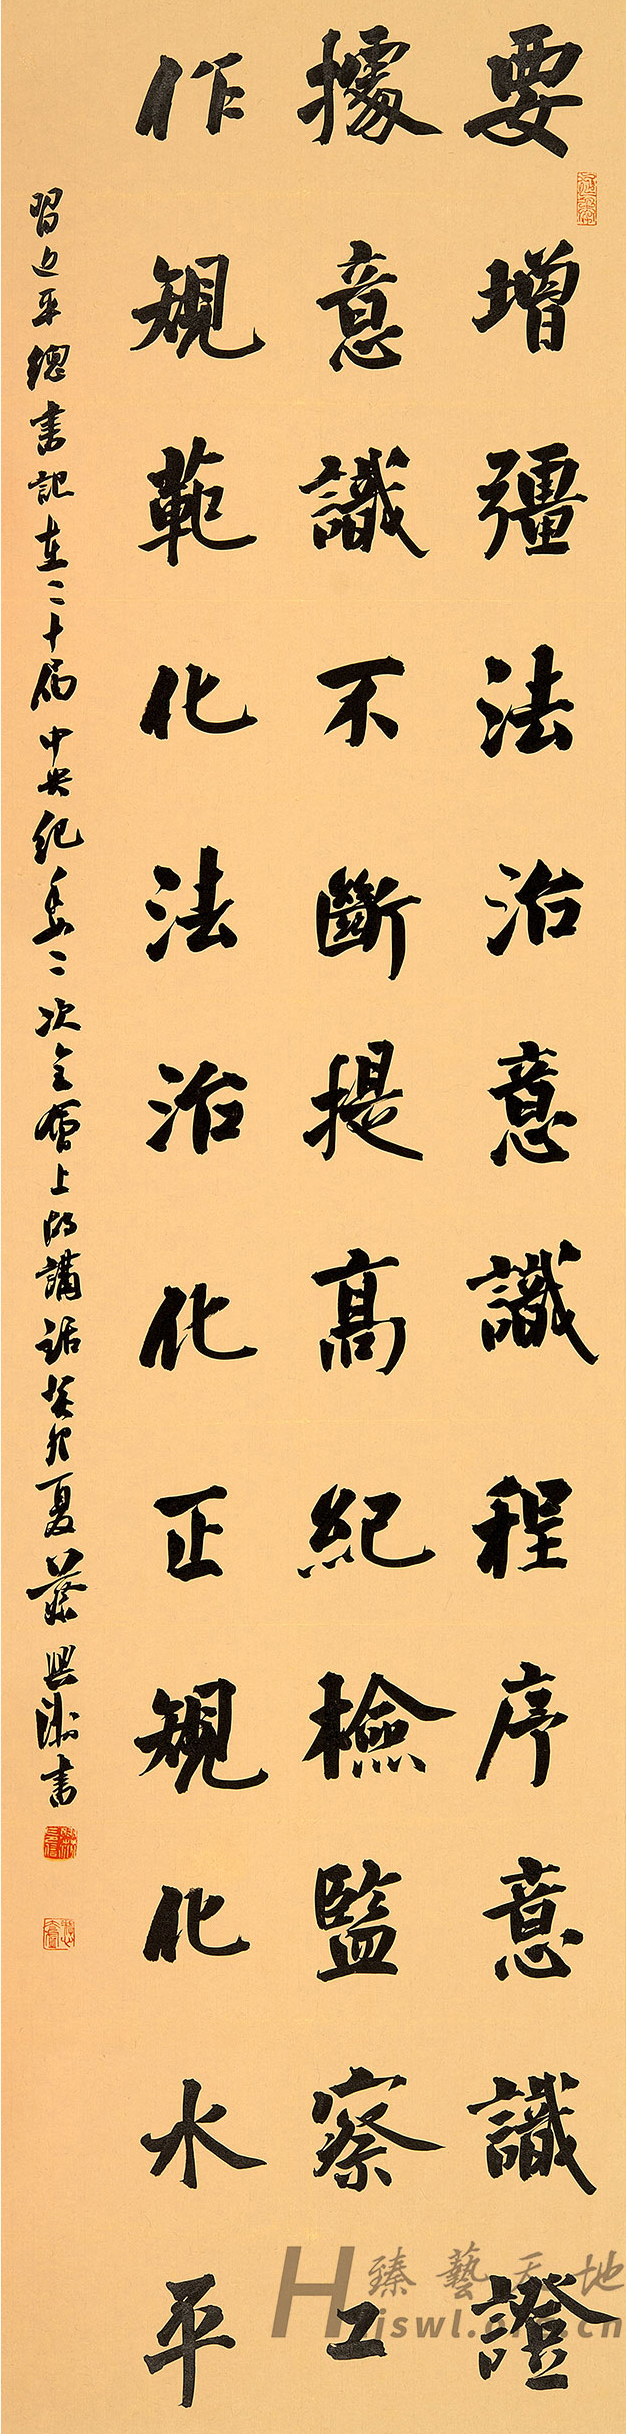 要增彊法治意識程序意識證
據意識不斷提高紀檢監察工
作規範化法治化正規化水平
習近平總書記在二十屆中央紀委二次全會上的講話癸卯夏興書
臻藝天地